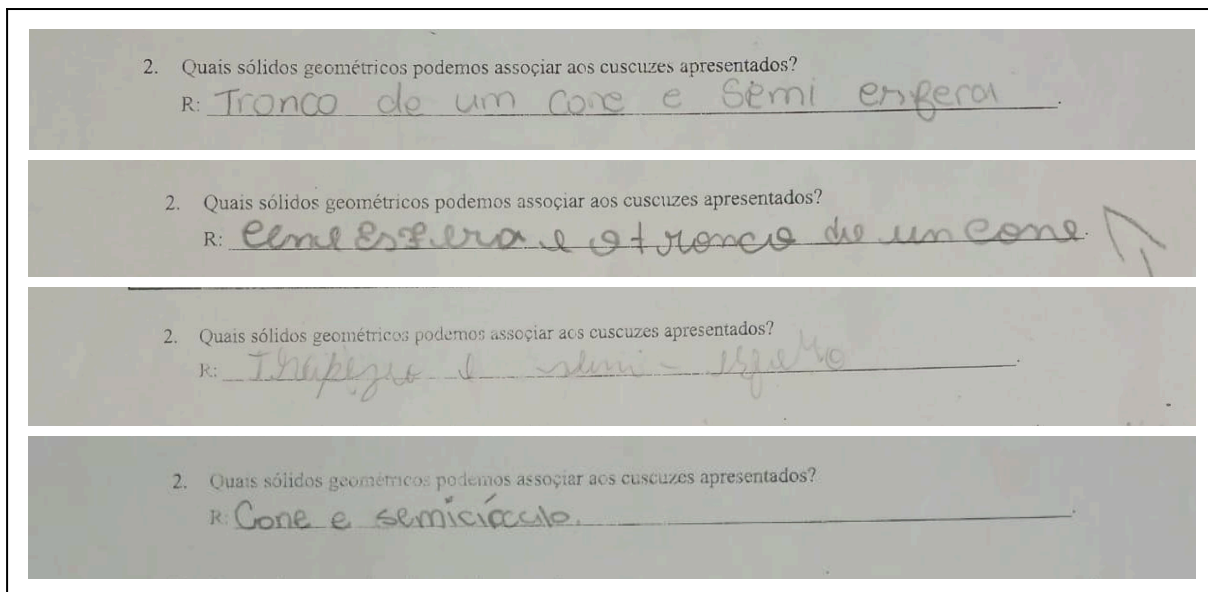 2. Quais sólidos geométricos podemos assoçiar aos cuscuzes apresentados?
R: Tronco de um cone e Semi esfera.
2. Quais sólidos geométricos podemos assoçiar aos cuscuzes apresentados?
R: Ceme Esfera e o tronco de un cone.
2. Quais sólidos geométricos podemos assoçiar aos cuscuzes apresentados?
R: Trapezio e semi-esfera.
2. Quais sólidos geométricos podemos assoçiar aos cuscuzes apresentados?
R: Cone e semicírculo.